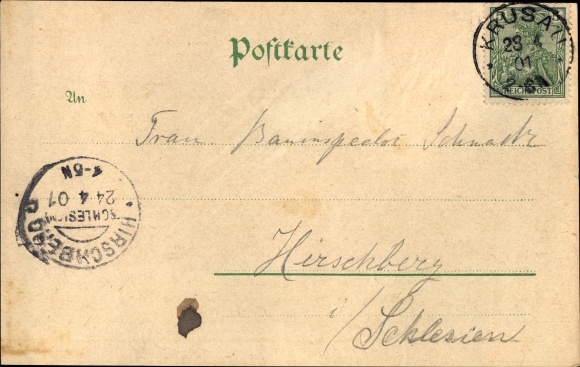 Postkarte
KRUSAU
23 4
01
REICHSPOST
An
Frau Bauinspector
HIRSCHBERG
(SCHLESIEN)
24 4 01
4-5N
Hirschberg
i/
Schlesien